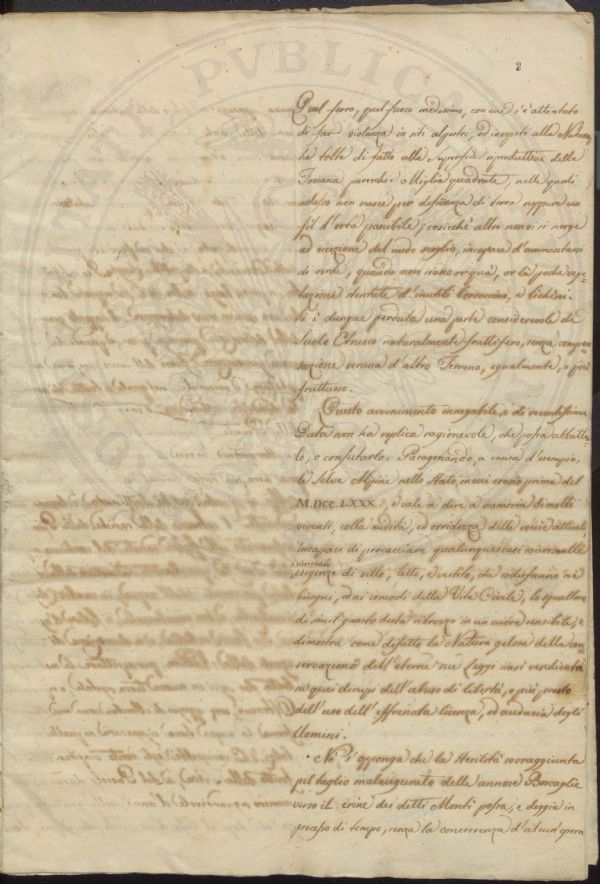 2
Quel ferro, quel fuoco medesimo, con cui s'è attentato
di far violenza in siti alpestri, ed incogniti alla Natura,
ha tolte di fatto alla superficie riproduttiva della
Toscana parecchie Miglia quadrate, nelle quali
adesso non nasce per deficienza di terra neppure un
fil d'erba pascibile; cosicchè altro non vi si scorge
ad eccezione del nudo scoglio, incapace d'ammantarsi
di verde, quando non siano or qua, or là poche vege-
tazioni stentate d'inutili, e lichéni.
Si è dunque perduta una parte considerevole di
Suolo Etrusco naturalmente fruttifero, senza compen-
sazione veruna d'altro Terreno, egualmente, o più
fruttuoso.
Questo avvenimento innegabile, e di recentissima
Data non ha replica ragionevole, che possa abbatter-
lo, o confutarlo. Paragonando, a causa d'esempio,
le Selve Alpine nello Stato, in cui erano prima del
M.DCC.LXXX., e vale a dire a memoria di molti
viventi, colla nudità, ed orridezza delle roccie attuali,
incapaci di procacciare qualunque siasi alle
esigenze di vitto, letto, e vestito, che sodisfanno ai
bisogni, ed ai comodi della Vita Civile, lo squallore
di simil guasto desta ribrezzo in un cuore sensibile, e
dimostra come difatto la Natura gelosa della con-
servazione dell'eterne sue Leggi siasi vendicata
in quei dirupi dell'abuso di libertà, o più presto
dell'uso dell'effrenata licenza, ed audacia degli
Uomini.
Nè s'opponga che la sterilità sovraggiunta
pel taglio malaugurato delle annose Boscaglie
verso il crine dei detti Monti possa, e deggia in
processo di tempo, senza la concorrenza d'alcun'opera